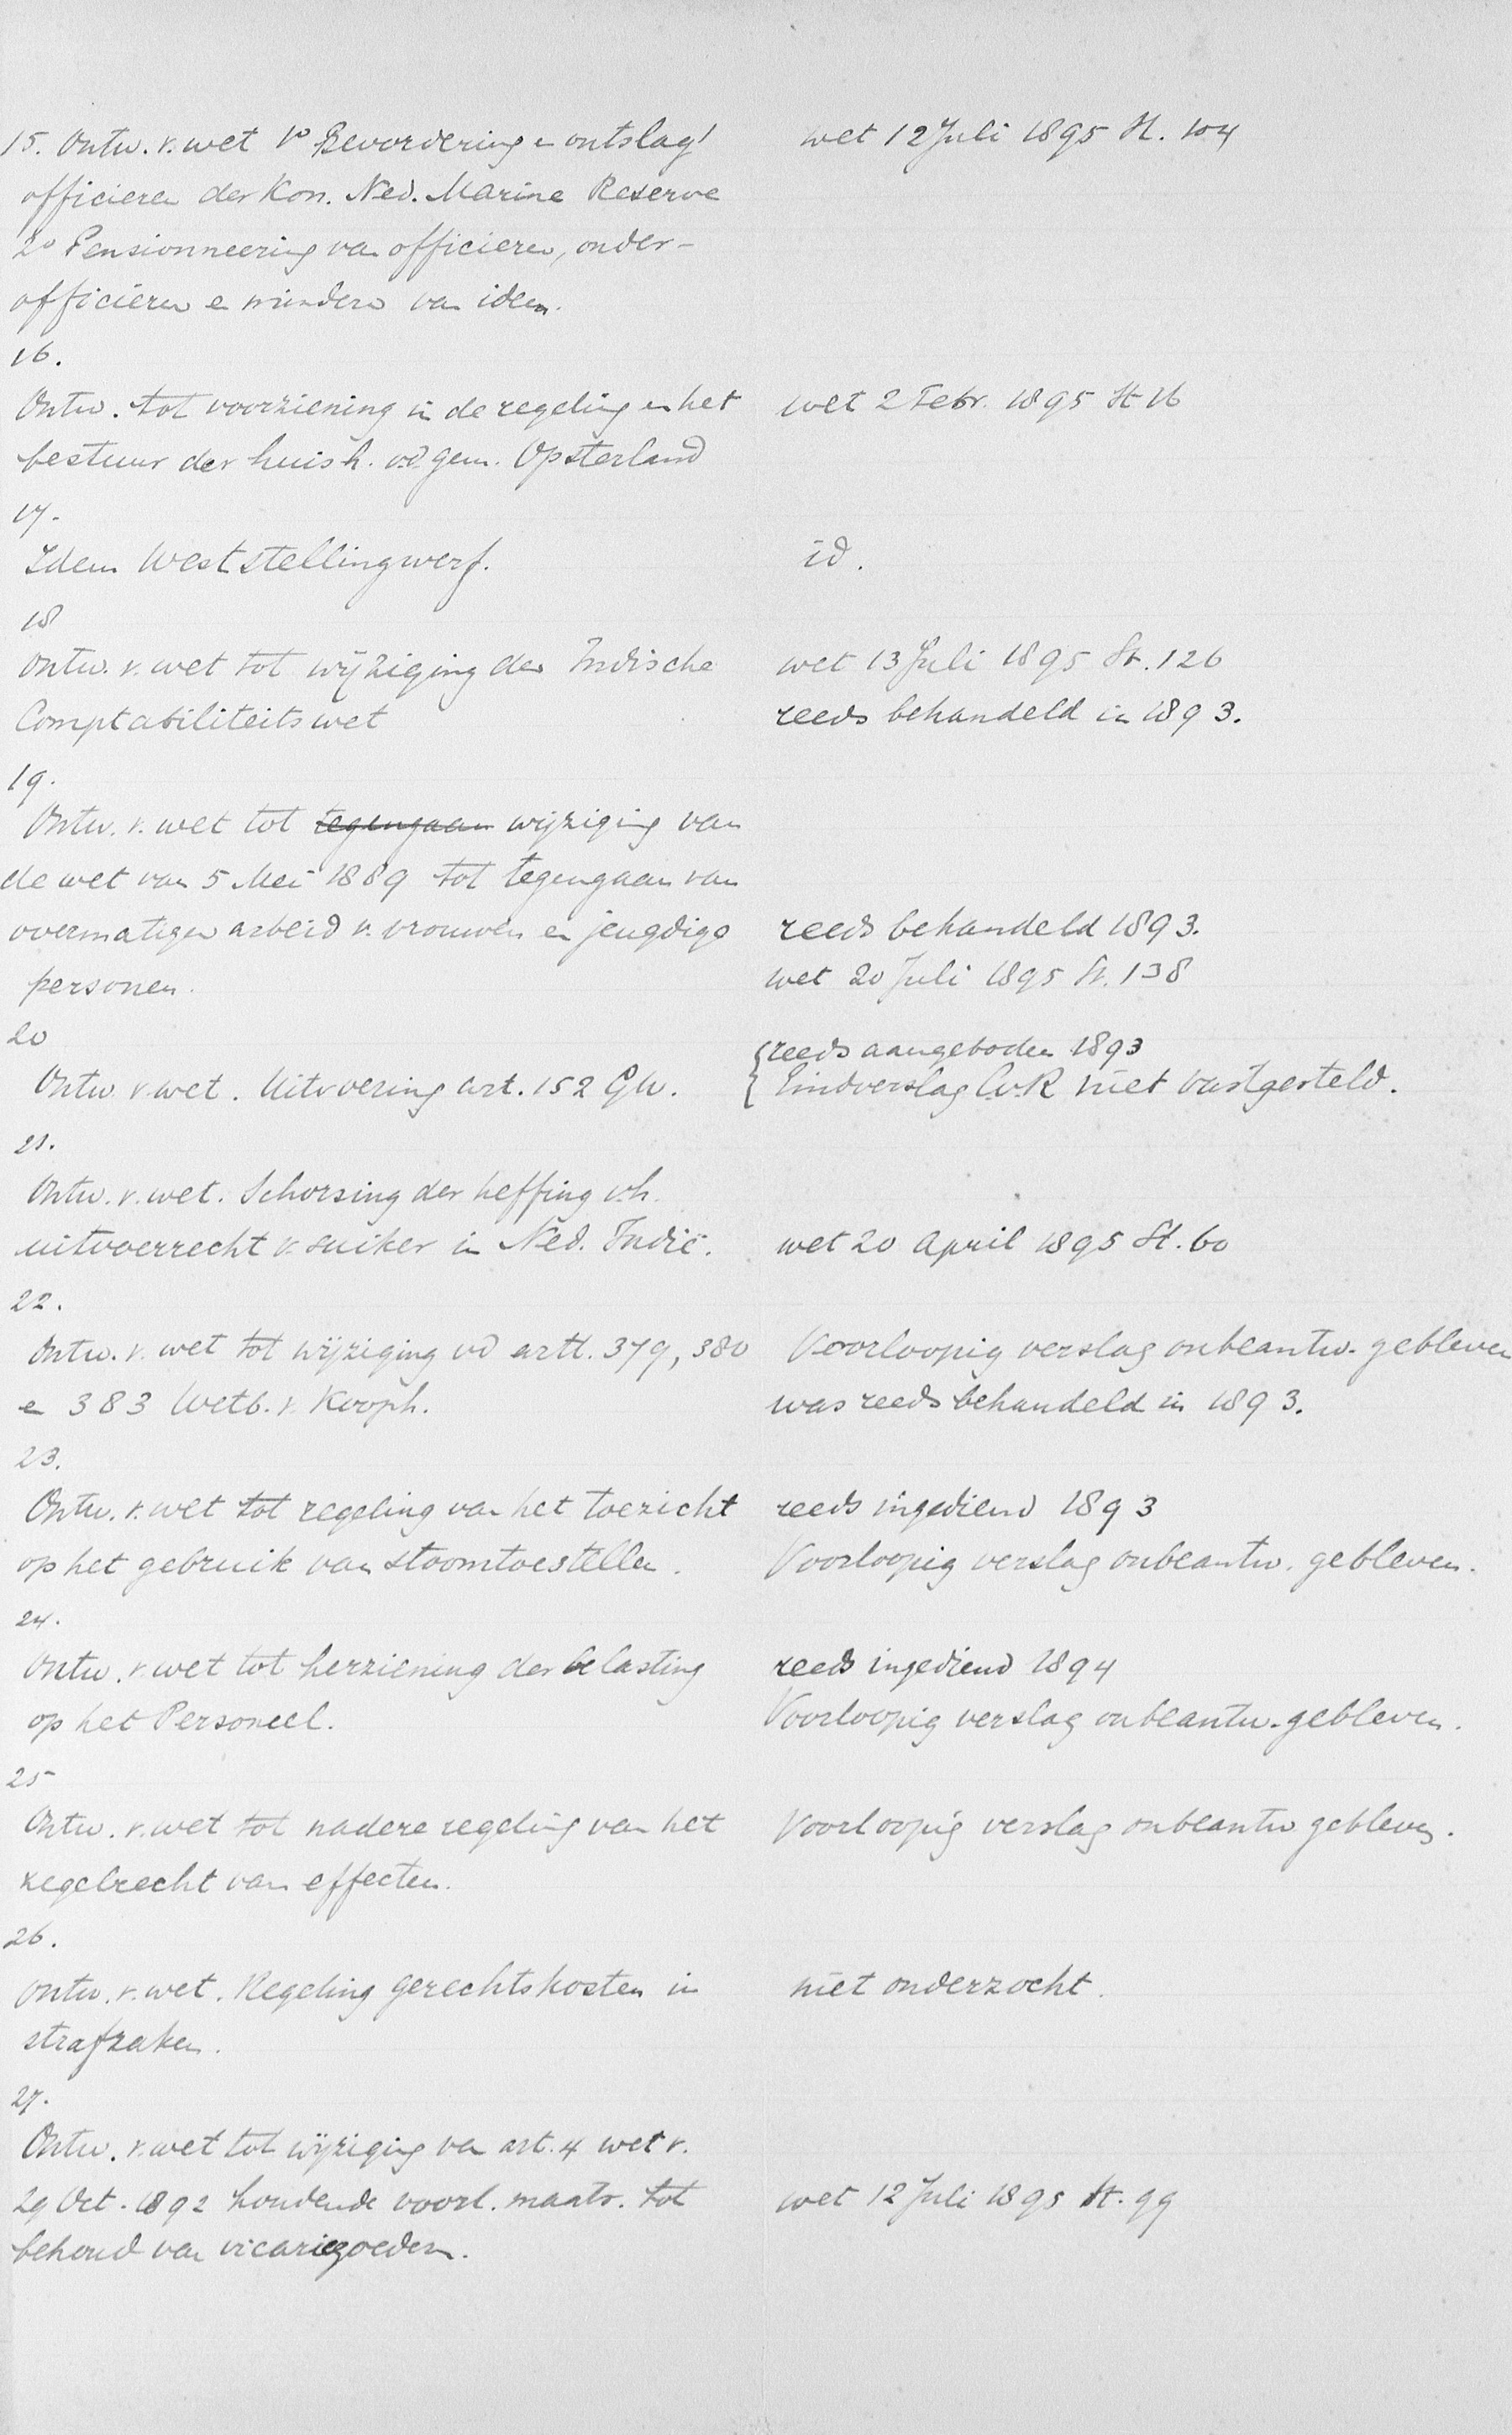 15. Ontw. v. wet 1o Bevordering en ontslag
wet 12 Juli 1895 St. 104
officieren der Kon. Ned. Marine Reserve
2o Pensionneering van officieren, onder-
officieren en mindern van idem.
16.
Ontw. tot voorziening in de regeling en het
wet 2 Febr. 1895 St 16
bestuur der huish. v.d. gem. Opsterland
17.
Idem Weststellingwerf.
id.
18
Ontw. v. wet tot wijziging der Indische
wet 13 Juli 1895 St. 126
Comptabiliteitswet
reeds behandeld in 1893.
19.
Ontw. v. wet tot tegengaan wijziging van
de wet van 5 Mei 1889 tot tegengaan van
overmatigen arbeid v. vrouwen en jeugdige
reeds behandeld 1893.
personen.
wet 20 Juli 1895 St. 138
20
reeds aangeboden 1893
Ontw. v. wet. Uitvoering art. 152 G.W.
Eindverslag C.v.R niet vastgesteld.
21.
Ontw. v. wet. Schorsing der heffing v.h.
uitvoerrecht v. suiker in Ned. Indië.
wet 20 April 1895 St. 60
22.
Ontw. v. wet tot wijziging vd artt. 379, 380
Voorloopig verslag onbeantw. gebleven
en 383 Wetb. v. Kooph.
was reeds behandeld in 1893.
23.
Ontw. v. wet tot regeling van het toezicht
reeds ingediend 1893
op het gebruik van stoomtoestellen.
Voorloopig verslag onbeantw. gebleven.
24.
Ontw. v. wet tot herziening der belasting
reeds ingediend 1894
op het Personeel.
Voorloopig verslag onbeantw. gebleven.
25
Ontw. v. wet tot nadere regeling van het
Voorloopig verslag onbeantw gebleven.
zegelrecht van effecten.
26.
Ontw. v. wet. Regeling gerechtskosten in
niet onderzocht.
strafzaken.
27.
Ontw. v. wet tot wijziging van art. 4 wet v.
29 Oct. 1892 houdende voorl. maatr. tot
wet 12 Juli 1895 St. 99
behoud van vicariegoederen.